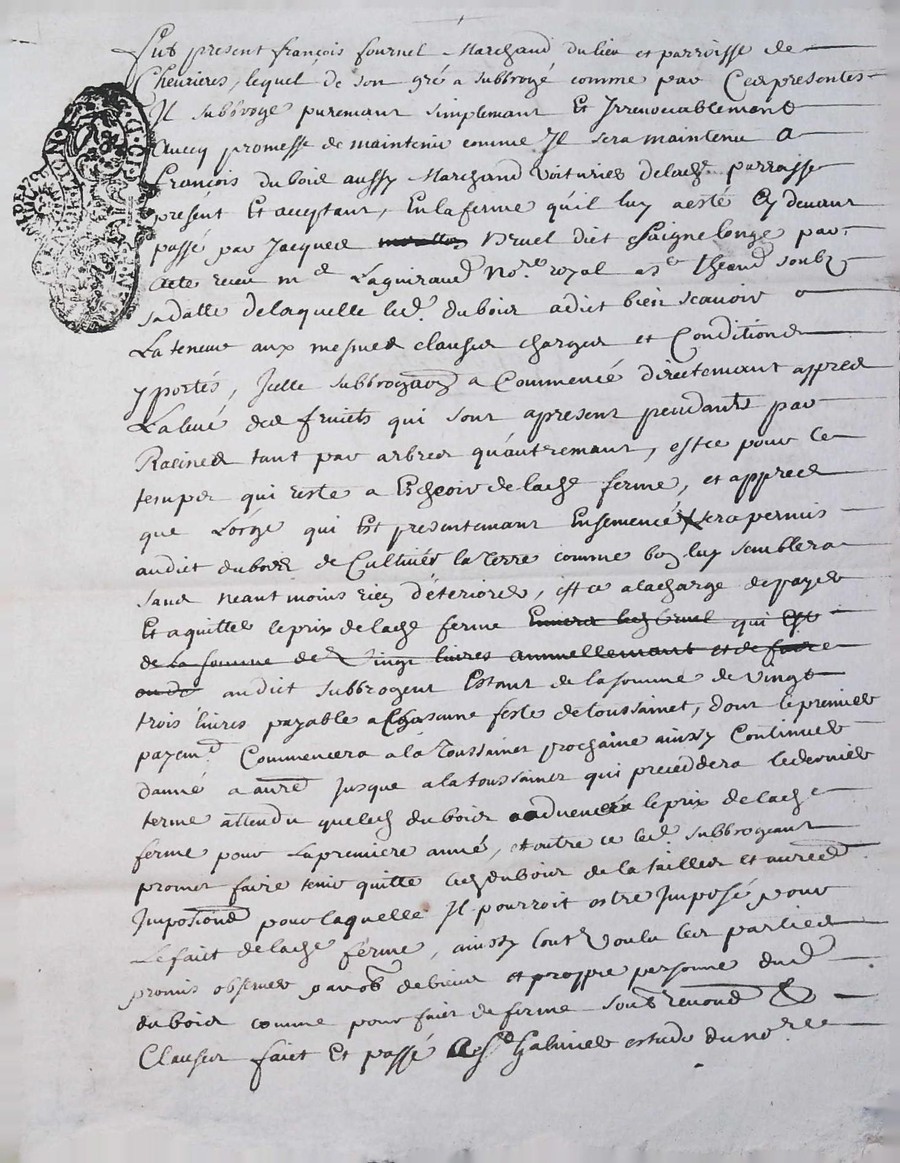 Fut present françois fournel Marchand du lieu et parroisse de
Chevrieres, lequel de son gré a subbrogé comme par Ces presentes
Il subbroge purement simplemant Et Irrevocablemant
Avecq promesse de maintenir comme Il sera maintenu A
françois du bois aussy Marchand Voiturier de lad parroisse
present Et acceptant, En la ferme qu'il luy a esté Cy devant
passé par Jacques Bruel dict Saignelonge par
acte receu md Laguiraud Nore royal a St heand soubz
sa datte de laquelle led. du bois a dict bien scavoir
La teneur aux mesmes clauses charges et Conditions
y portés, Icelle subbroga͠on a Commencé directemant appres
La levé des fruicts qui sont apresent pendants par
Racines tant par arbres qu'autremant, est ce pour le
temps qui reste a Escheoir de lad ferme, et appres
que L'orge qui Est presentemant Ensemencé sera permis
audict du bois de Cultiver la terre comme bon luy semblera
sans neantmoins rien d'eteriorer, est ce a la charge de payer
Et aquitter le prix de lad ferme Envers led Bruel qui Est
de la somme de Vingt livres annuellemant et de faire
audict subbrogeur Estant de la somme de vingt
trois livres payable a Chascune feste de toussainct, dont le premier
payemt Commencera a la Toussainct prochaine ainsy Continuer
d'anné a autre Jusque a la toussainct qui preceddera le dernier
terme attendu que led du bois a advencé le prix de lad
ferme pour La premiere anné, et outre ce led subbrogeant
promet faire tenir quitte led du bois de la tailles et autres
Impositions pour laquelle Il pourroit estre Imposé pour
Le faict de lad ferme, ainsy l'ont Voulu les parties
promis observer par ob de bieus et propre personne dud
du bois comme pour faict de ferme soub renond &
Clauses faict Et passé A St Galmier estude du nore